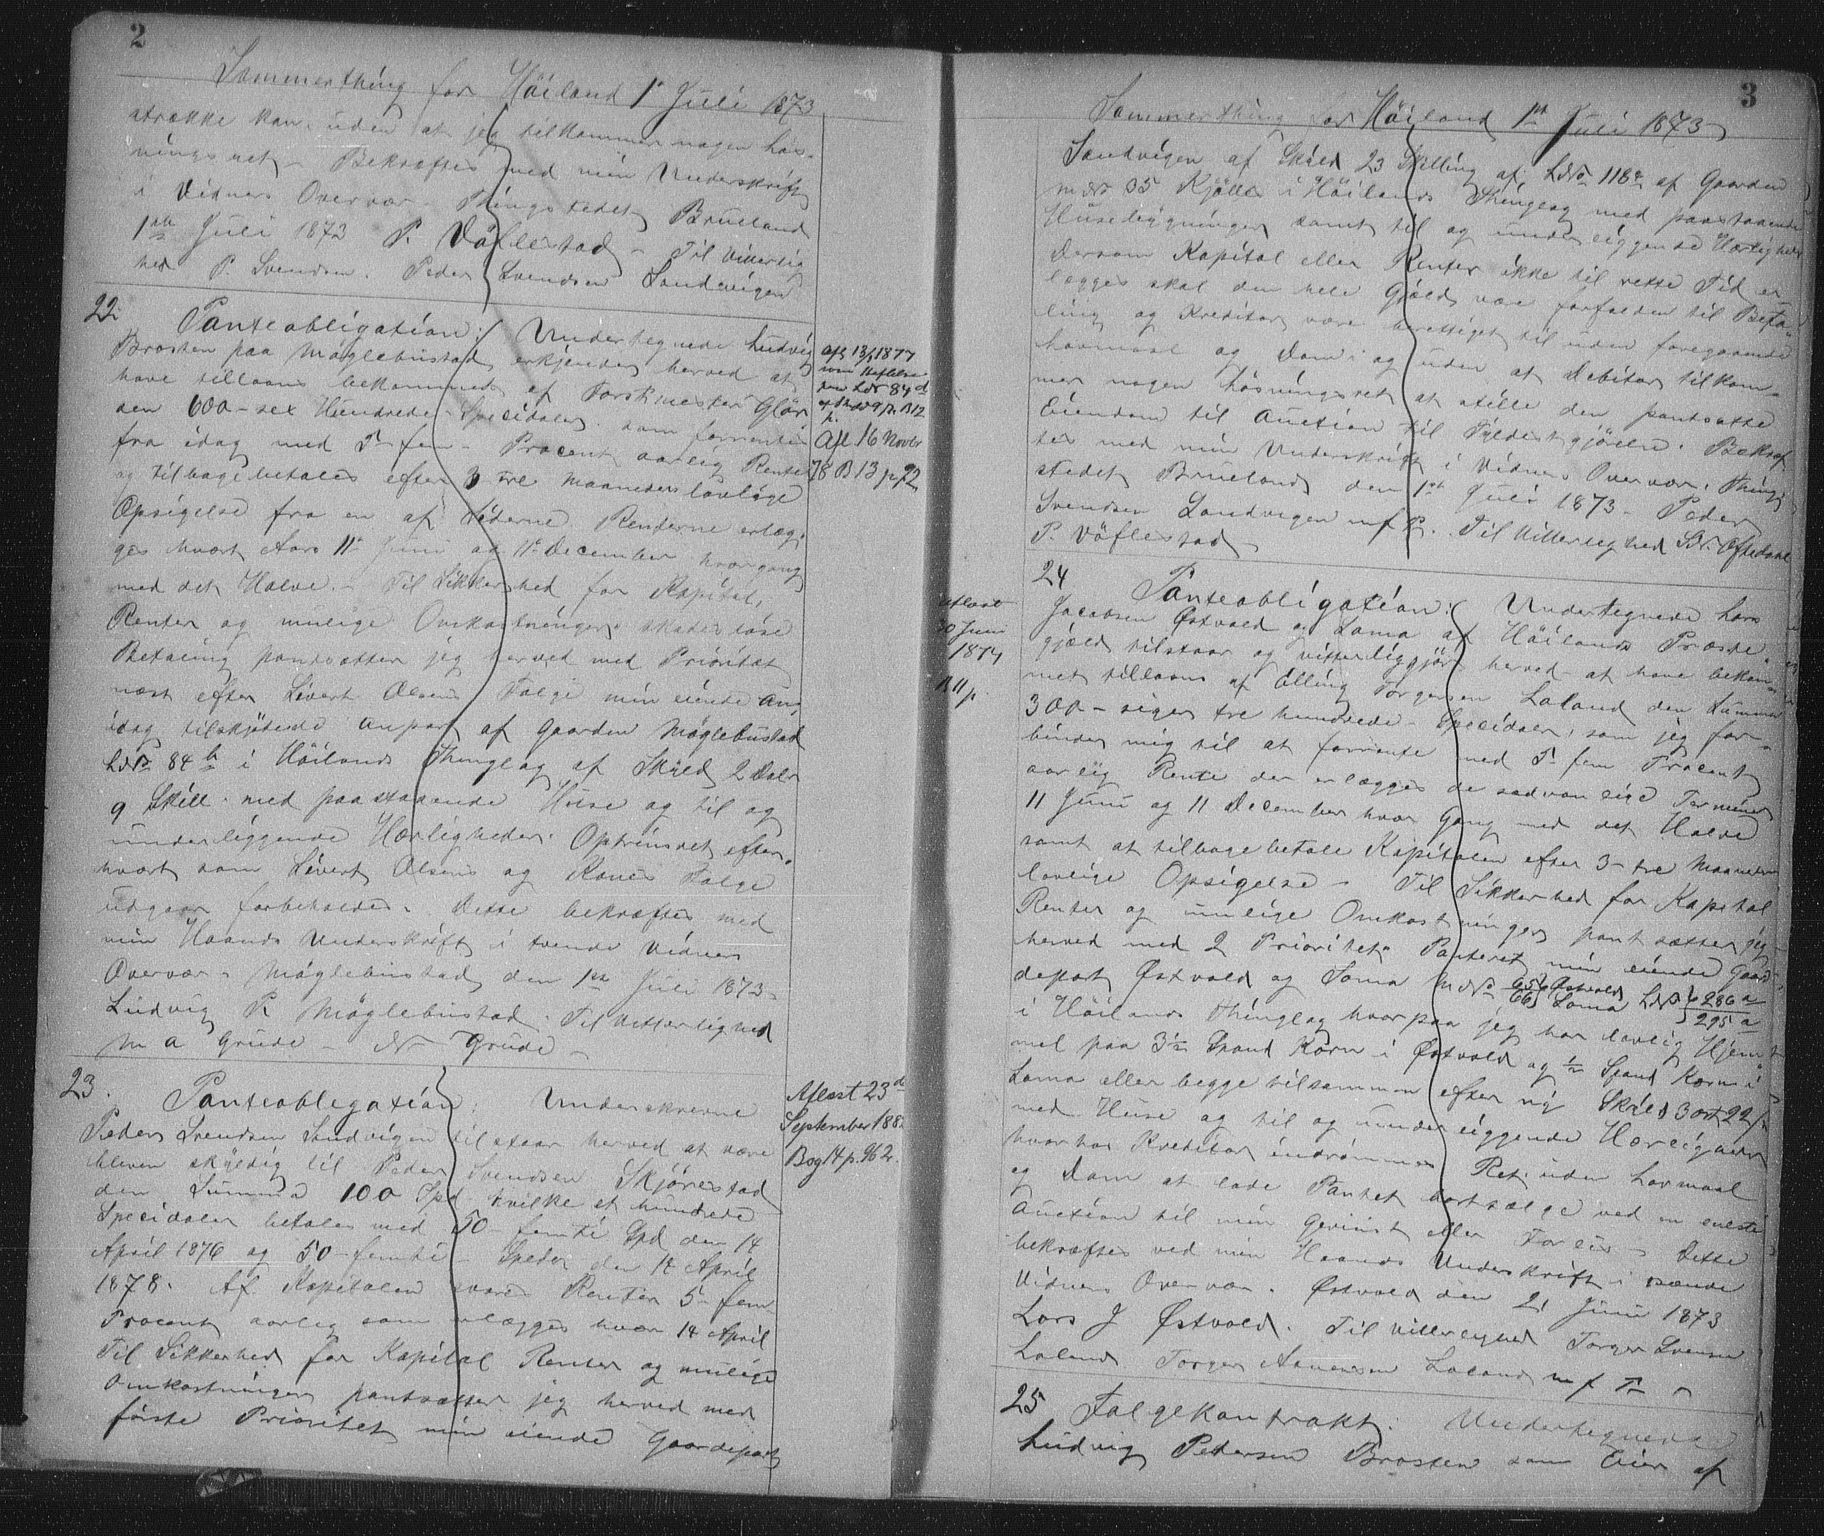 2
Sommerthing for Höiland 1ste Juli 1873
strække kan uden at jeg tilkommer nogen løs-
ningsret. Bekræftes med min Underskrift
i Vidners Overvær. Thingstedet Brueland
1ste Juli 1873 P. Vöflestad. Til Vitterlig
hed P. Svendsen. Peder Svendsen Sandvigen
22. Panteobligation: Undertegnede Ludvig
Brosten paa Möglebustad erkjender herved at
have tillaans bekommet af Forstmester Glör
den 600 - sex Hundrede - Specidaler som forrentes
fra idag med 5 - fem - Procent aarlig Rente
og tilbagebetales efter 3 tre Maaneders lovlige
Opsigelse fra en af Siderne. Renterne erlæg-
ges hvert Aars 11te Juni og 11te December hvergang
med det Halve. Til Sikkerhed for Kapital,
Renter og mulige Omkostningers skadesløse
Betaling pantsætter jeg herved med Prioritet
næst efter Sivert Olsens Folge min eiende An,
idag tilskjötede anpart af Gaarden Möglebustad
LNo 84b i Höilands Thinglag af Skyld 2 Daler
9 Skill. med paastaaende Huse og til og
underliggende Herligheder. Optrinsret efter-
hvert som Sivert Olsens og Kones Folge
udgaar forbeholdes. Dette bekræftes med
min Haands Underskrift i tvende Vidners
Overvær. Möglebustad den 1ste Juli 1873
Ludvig P. Möglebustad. Til Vitterlighed
M A Grude - N Grude -
Afl 13/ 1877
84d
B12
p.
Afl 16 Novbr
78 B 13 p 92
23. Panteobligation: Underskrevne
Peder Svendsen Sandvigen tilstaar herved at være
bleven skyldig til Peder Svendsen Skjörestad
den Summa 100 Spd hvilke et hundrede
Specidaler betales med 50 - femti Spd den 14
April 1876 og 50 - femti - Spd den 14 April
1878. Af Kapitalen svares Renter 5 - fem
Procent aarlig som erlægges hver 14 April
Til Sikkerhed for Kapital Renter og mulige
Omkostninger pantsætter jeg herved med
første Prioritet min eiende Gaardepart
Aflæst 23d
September 188
Bog 14 p. 962.
3
Sommerthing for Höiland 1ste Juli 1873
Sandvigen af Skyld 23 Skilling af LNo 118a af Gaarden
MNo 35 Kjölle i Höilands Thinglag med paastaaende
Husebygninger samt til og underliggende Herligheder
Dersom Kapital eller Renter ikke til rette Tid er-
lægges skal den hele Gjæld være forfalden til Beta-
ling og Kreditor være berettiget til uden foregaaende
Lovmaal og Dom og uden at Debitor tilkom-
mer nogen løsningsret at stille den pantsatte
Eiendom til Auction til Fyldestgjörelse. Bekræf
tes med min Underskrift i Vidners Overvær. Thing-
stedet Brueland den 1ste Juli 1873 - Peder
Svendsen Sandvigen m f P. Til Vitterlighed Br. Oftedahl
P. Vöflestad
24 Panteobligation: Undertegnede Lars
Jacobsen Østvold og Soma af Höilands Præste
gjæld tilstaar og vitterliggjör herved at have bekom-
met tillaans af Elling Torgersen Laland den Summa
300 - siger tre hundrede - Specidaler, som jeg for-
binder mig til at forrente med 5 fem Procent
aarlig Rente der erlægges de sædvanlige Terminer
11 Juni og 11 December hver Gang med det Halve
samt at tilbagebetale Kapitalen efter 3 - tre Maaneders
lovlige Opsigelse. Til Sikkerhed for Kapital
Renter og mulige Omkostninger pantsætter jeg
herved med 2 Prioritets Panteret min eiende Gaar-
depart Østvold og Soma MNo 65 Østvold 66 Soma LNo 286a 295a
i Höilands Thinglag hvorpaa jeg har lovlig Hjem-
mel paa 3 1/2 Spand Korn i Østvold og 1/2 Spand Korn i
Soma eller begge tilsammen efter ny Skyld 3 ort 22 s
med Huse og til og underliggende Herligheder
hvorhos Kreditor indrömmes Ret uden Lovmaal
og Dom at lade Pantet bortsælge ved en eneste
Auction til min Gevinst eller Forlis. Dette
bekræftes ved min Haands Underskrift i tvende
Vidners Overvær. Østvold den 21 Juni 1873
Lars J Østvold. Til Vitterlighed Torger Svensen
Laland Torger Laland m f P
aflæst
30 Juni
1874
B 11 p.
25 Folgekontrakt. Undertegnede
Ludvig Petersen Brosten som Eier af